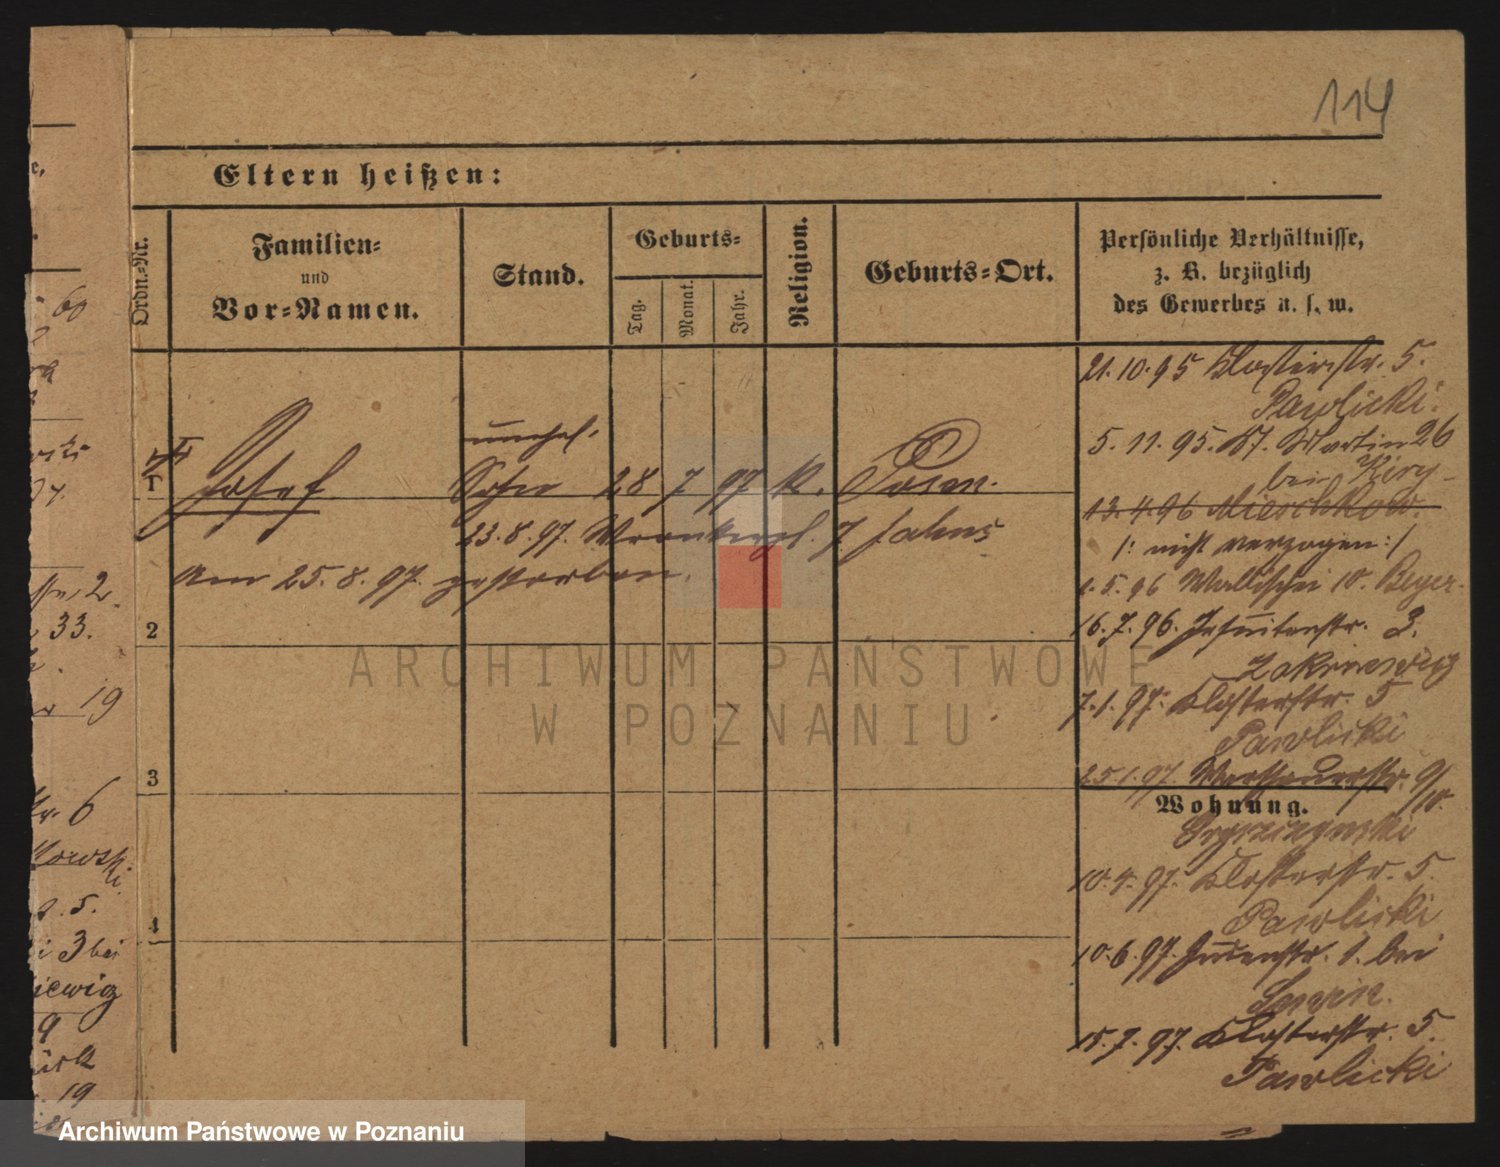 114
Eltern heißen:
Ordn.-Nr.
Familien-
und
Vor-Namen.
Stand.
Geburts-
Tag.
Monat.
Jahr.
Religion.
Geburts-Ort.
Persönliche Verhältnisse,
z. B. bezüglich
des Gewerbes u. s. w.
21.10.95 Klosterstr. 5.
Pawlicki.
5.11.95. St. Martin 26
bei
13.4.96 Mieschkow.
/: nicht verzogen :/
1.5.96 Wallischei 10. Beyer.
16.7.96. Jesuitenstr. 3.
7.1.97. Klosterstr. 5
Pawlicki
25.1.97. 9/10.
Wohnung.
10.4.97. Klosterstr. 5.
Pawlicki
10.6.97. Judenstr. 1. bei
Lewin.
15.7.97. Klosterstr. 5.
Pawlicki
1
unehel.
Josef Sohn 28 7 97 K. Posen.
23.8.97. 7
Am 25.8.97. gestorben.
2
3
4
60
2
33.
19
6
5.
3 bei
9
19
ARCHIWUM PAŃSTWOWE
W POZNANIU
Archiwum Państwowe w Poznaniu